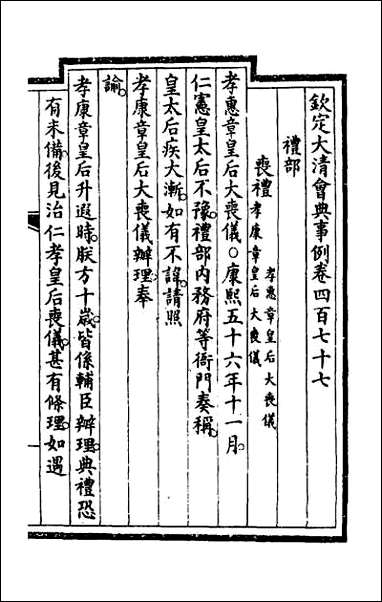 欽定大清會典事例卷四百七十七
禮部
喪禮孝惠章皇后大喪儀
孝康章皇后大喪儀
孝惠章皇后大喪儀○康熙五十六年十一月
仁憲皇太后不豫禮部內務府等衙門奏稱
皇太后疾大漸如有不諱請照
孝康章皇后大喪儀辦理奉
諭
孝康章皇后升遐時朕方十歲皆係輔臣辦理典禮恐
有未備後見治仁孝皇后喪儀甚有條理如遇